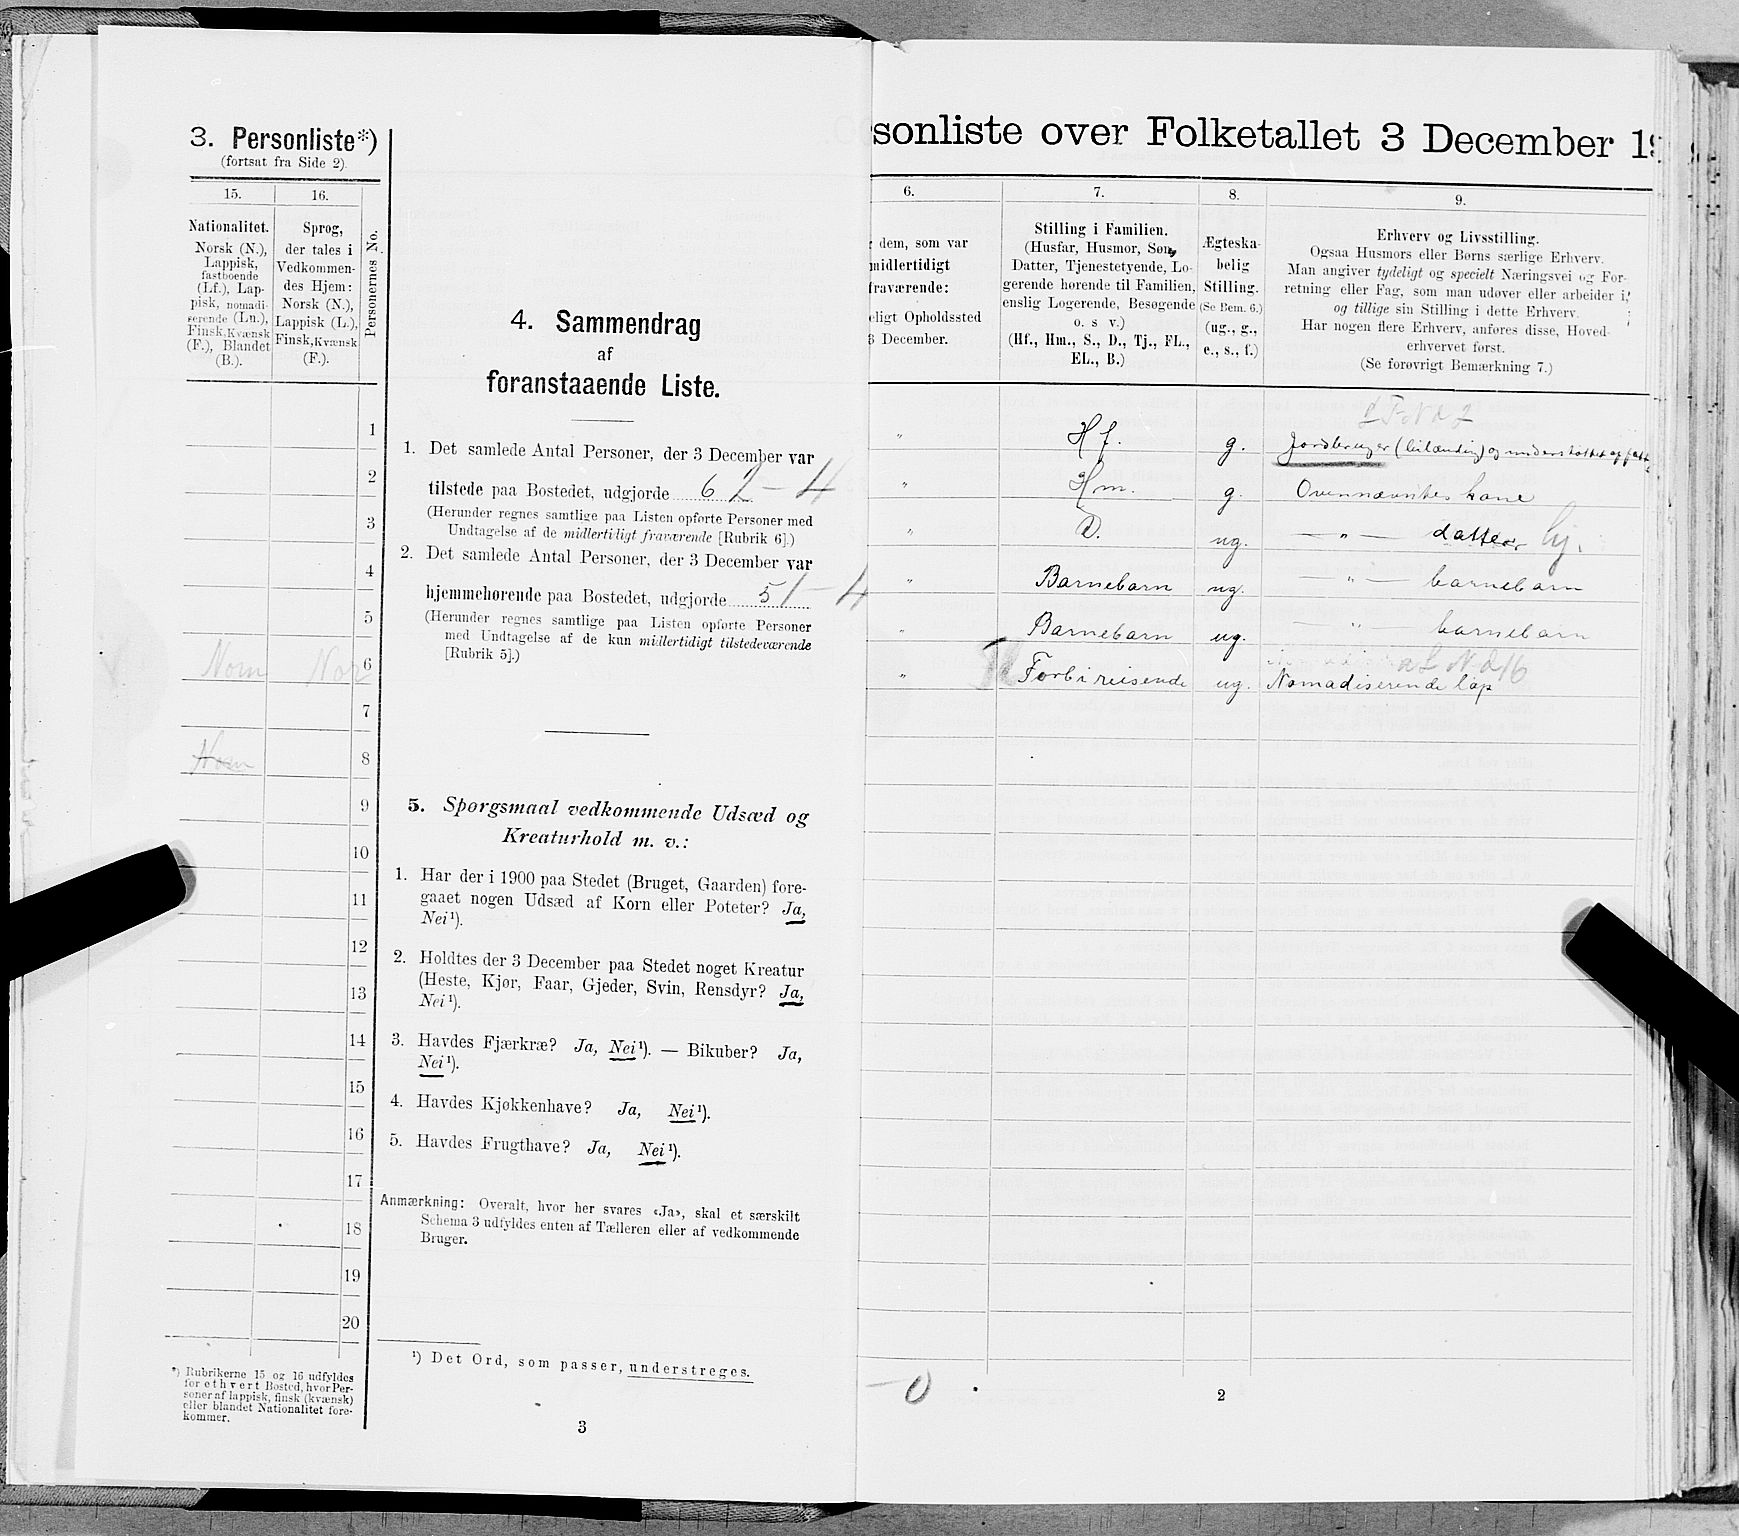 3. Personliste*)
(fortsat fra Side 2).
15.
16.
Personernes No.
Nationalitet.
Norsk (N.),
Lappisk,
fastboende
(Lf.), Lap-
pisk, nomadi-
serende (Ln.),
Finsk, Kvænsk
(F.), Blandet
(B.).
Sprog,
der tales i
Vedkommen-
des Hjem:
Norsk (N.),
Lappisk (L.),
Finsk, Kvænsk
(F.).
1
2
3
4
5
6
7
8
9
10
11
12
13
14
15
16
17
18
19
20
*) Rubrikerne 15 og 16 udfyldes
for ethvert Bosted, hvor Per-
soner af lappisk, finsk (kvænsk)
eller blandet Nationalitet fore-
kommer.
4. Sammendrag
af
foranstaaende Liste.
1. Det samlede Antal Personer, der 3 December var
tilstede paa Bostedet, udgjorde 6 2 – 4
(Herunder regnes samtlige paa Listen opførte Personer med
Undtagelse af de midlertidigt fraværende [Rubrik 6].)
2. Det samlede Antal Personer, der 3 December var
hjemmehørende paa Bostedet, udgjorde 5 1 – 4
(Herunder regnes samtlige paa Listen opførte Personer
med Undtagelse af de kun midlertidigt tilstedeværende
[Rubrik 5].)
5. Spørgsmaal vedkommende Udsæd og
Kreaturhold m. v.:
1. Har der i 1900 paa Stedet (Bruget, Gaarden) fore-
gaaet nogen Udsæd af Korn eller Poteter? Ja,
Nei¹).
2. Holdtes der 3 December paa Stedet noget Kreatur
(Heste, Kjør, Faar, Gjeder, Svin, Rensdyr? Ja,
Nei¹).
3. Havdes Fjærkræ? Ja, Nei¹). — Bikuber? Ja,
Nei¹).
4. Havdes Kjøkkenhave? Ja, Nei¹).
5. Havdes Frugthave? Ja, Nei¹).
Anmærkning: Overalt, hvor her svares «Ja», skal et særskilt
Schema 3 udfyldes enten af Tælleren eller af vedkommende
Bruger.
¹) Det Ord, som passer, understreges.
3
sonliste over Folketallet 3 December 19
6.
7.
8.
9.
dem, som var
midlertidigt
fraværende:
eligt Opholdssted
3 December.
Stilling i Familien.
(Husfar, Husmor, Søn,
Datter, Tjenestetyende, Lo-
gerende hørende til Familien,
enslig Logerende, Besøgende
o. s v.)
(Hf., Hm., S., D., Tj., FL.,
EL., B.)
Ægteska-
belig
Stilling.
(Se Bem. 6.)
(ug., g.,
e., s., f.)
Erhverv og Livsstilling.
Ogsaa Husmors eller Børns særlige Erhverv.
Man angiver tydeligt og specielt Næringsvei og For-
retning eller Fag, som man udøver eller arbeider i,
og tillige sin Stilling i dette Erhverv.
Har nogen flere Erhverv, anføres disse, Hoved-
erhvervet først.
(Se forøvrigt Bemærkning 7.)
" Hf. g. Jordbruger
" Hm. g. Ovennævntes kone
" D. ug. — " — datter hj.
" Barnebarn ug. — " — barnebarn
" Barnebarn ug. — " barnebarn
" Forbireisende ug. Nomadiserende lap
– 0
2